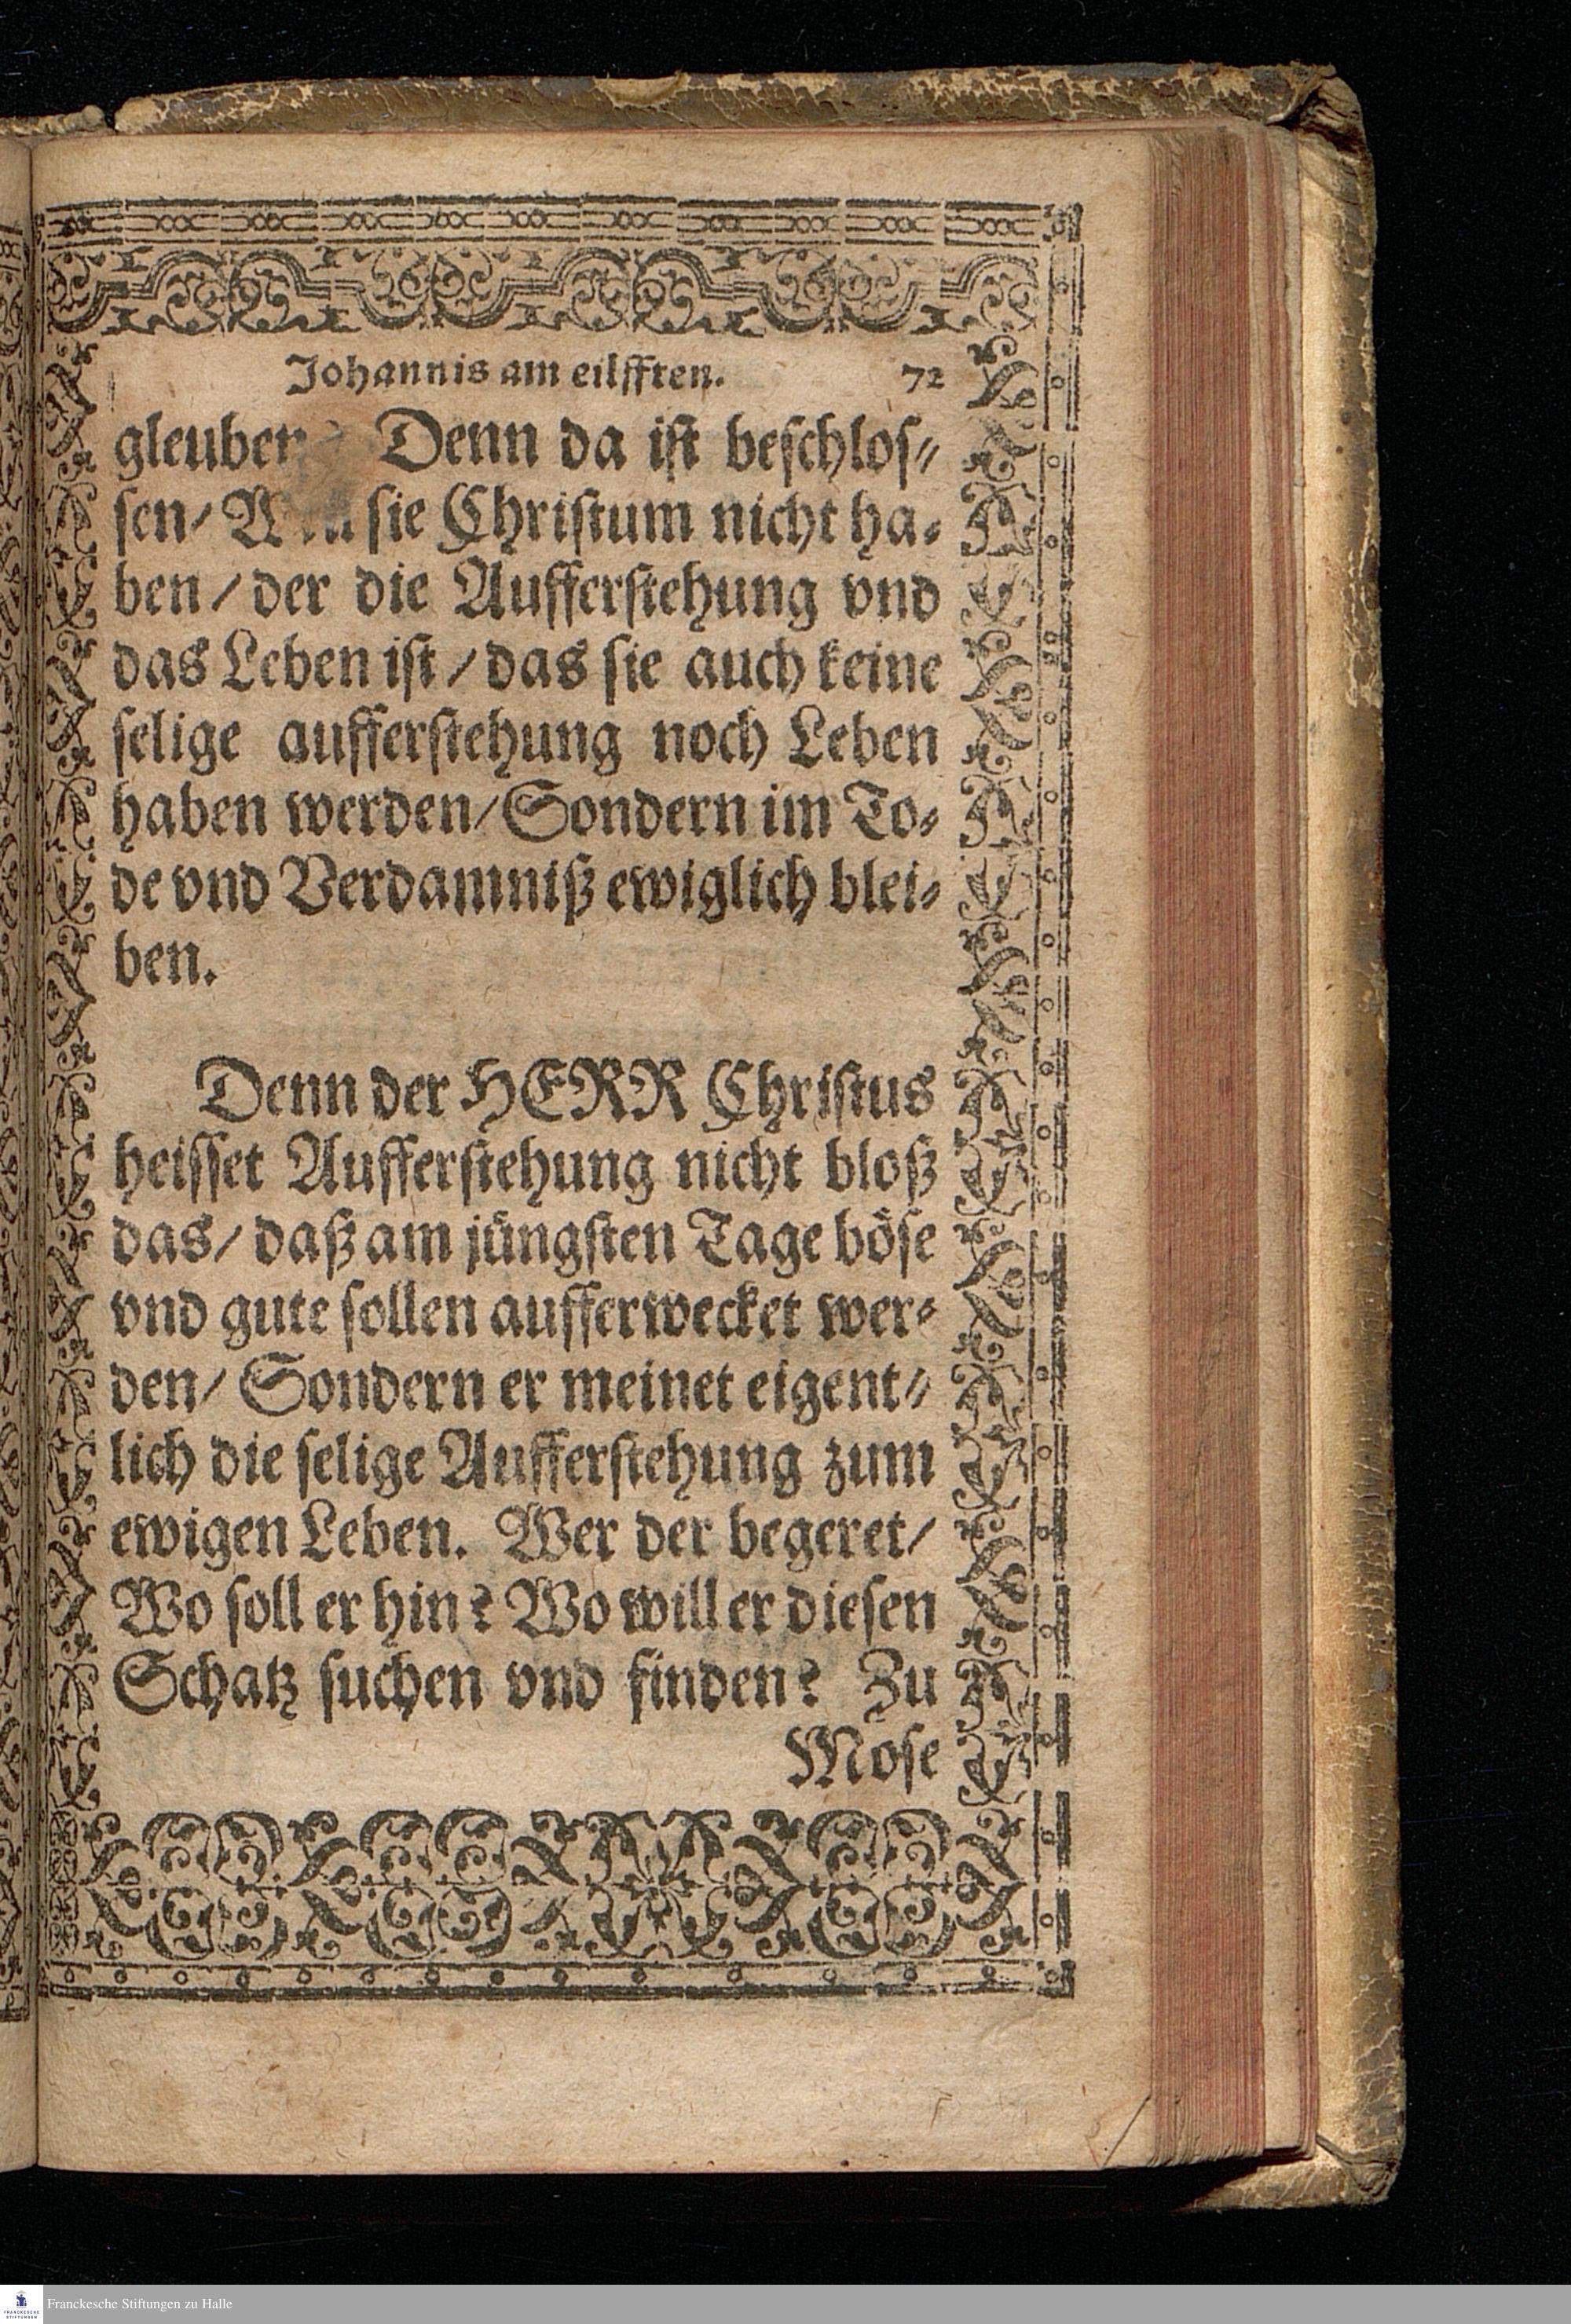 Johannis am eilfften. 72
Denn da ist beschlos⸗
sen/ sie Christum nicht ha⸗
ben/ der die Aufferstehung vnd
das Leben ist/ das sie auch keine
selige aufferstehung noch Leben
haben werden/ Sondern im To⸗
de vnd Verdamniß ewiglich blei⸗
ben.
Denn der HERR Christus
heisset Aufferstehung nicht bloß
das/ daß am jüngsten Tage böse
vnd gute sollen aufferwecket wer⸗
den/ Sondern er meinet eigent⸗
lich die selige Aufferstehung zum
ewigen Leben. Wer der begeret/
Wo soll er hin? Wo will er diesen
Schatz suchen vnd finden? Zu
Mose
Franckesche Stiftungen zu Halle
FRANCKESCHE
STIFTUNGEN